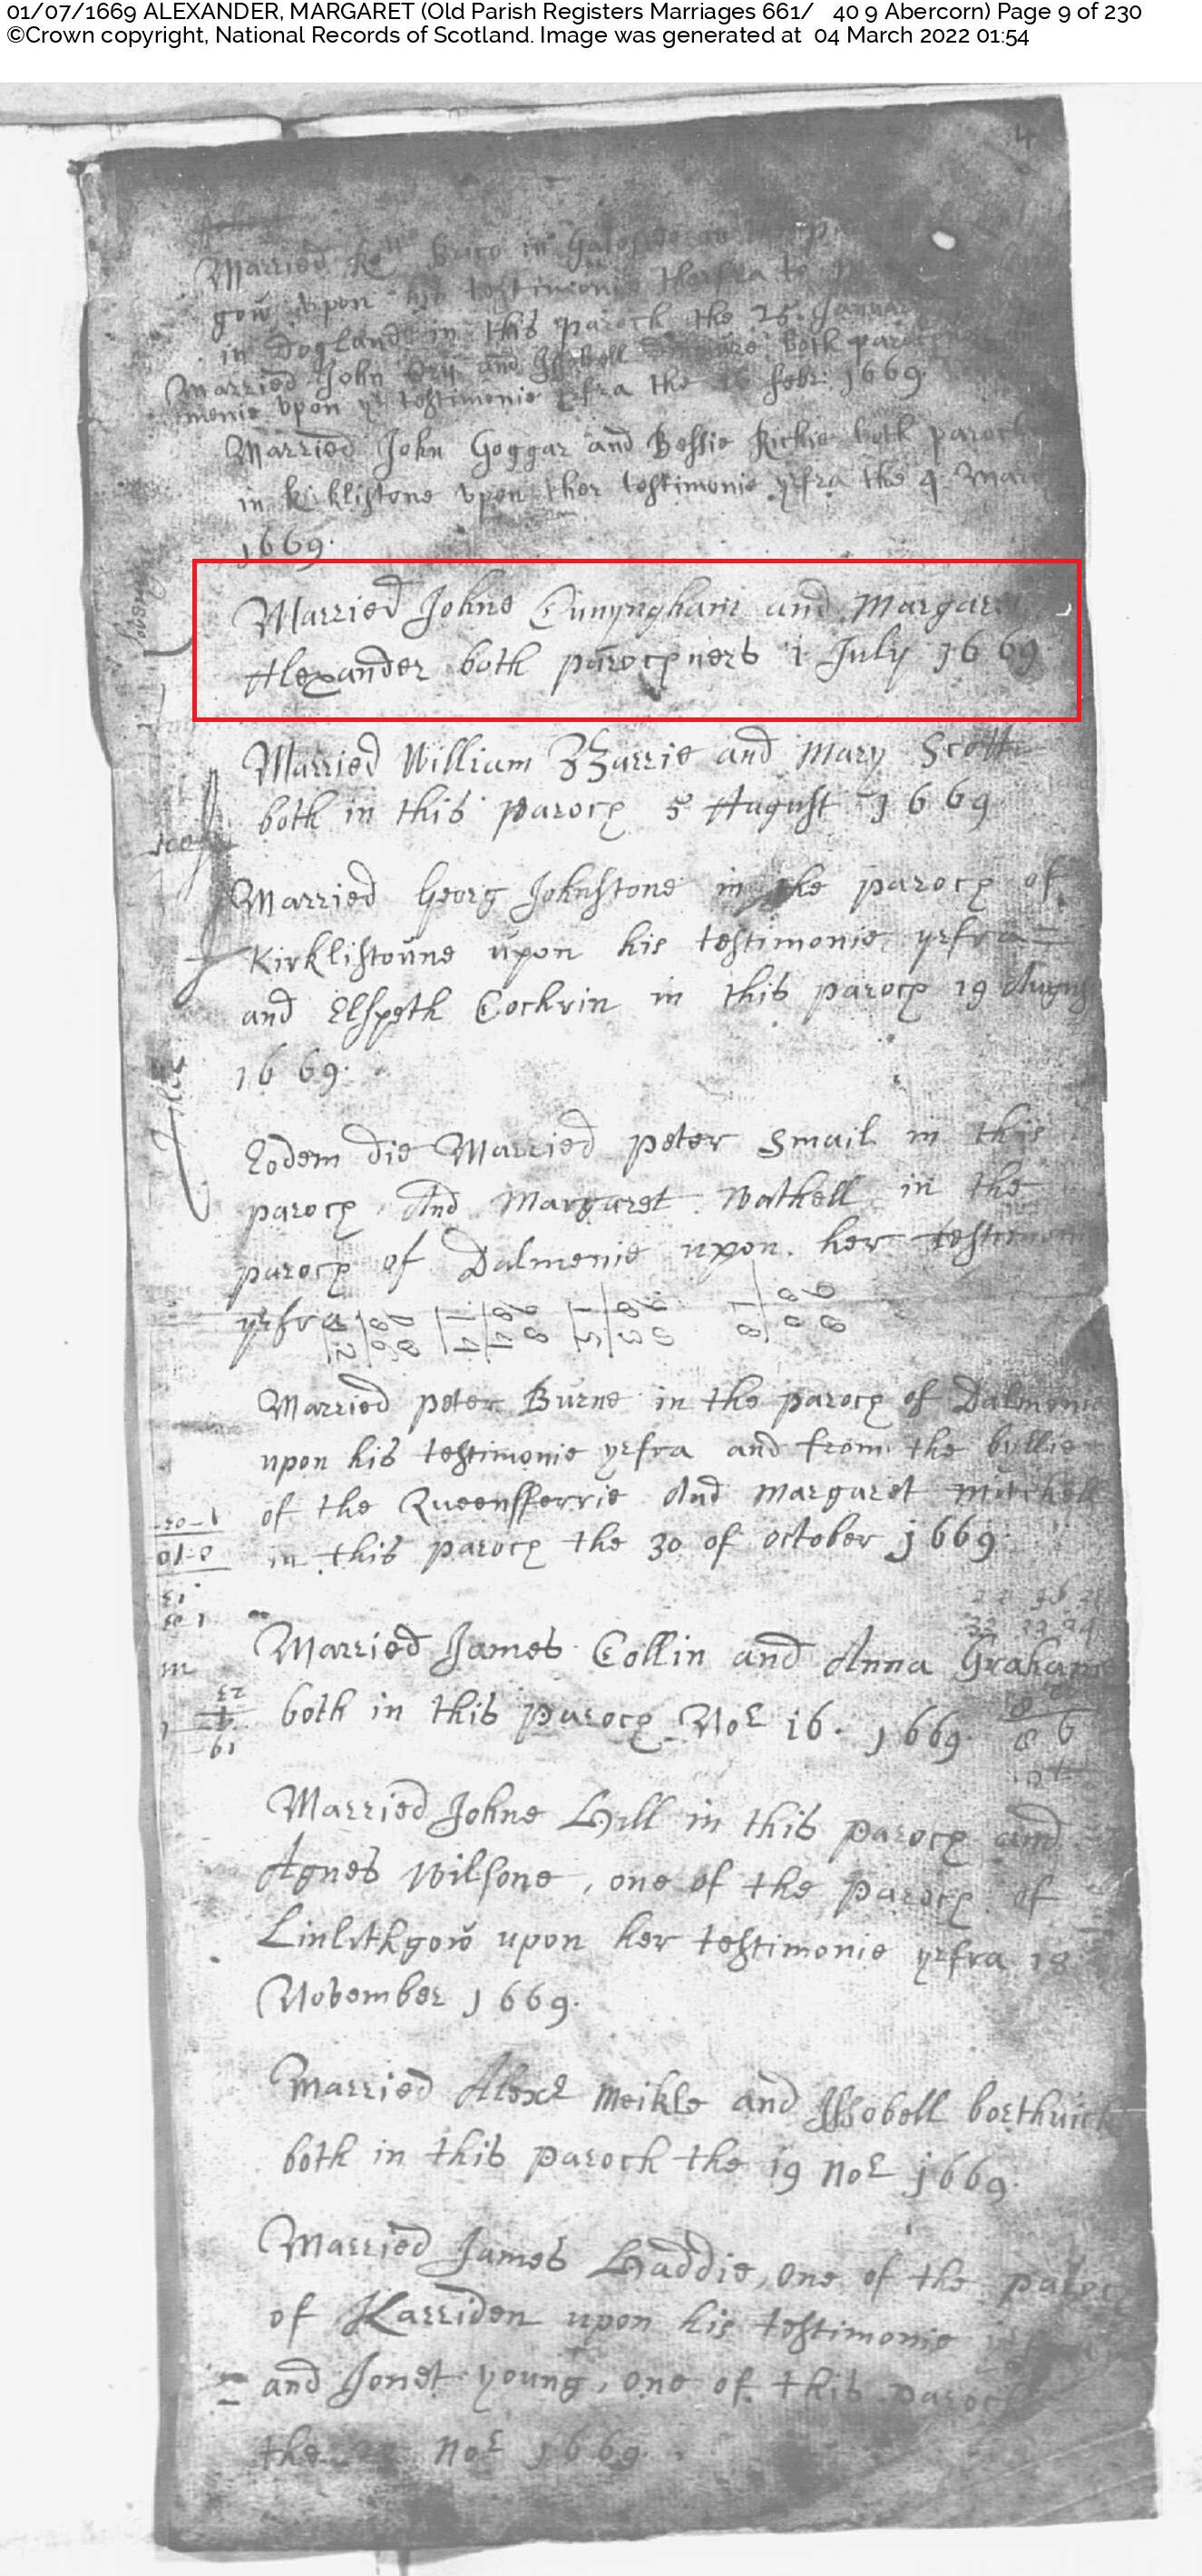 01/07/1669 ALEXANDER, MARGARET (Old Parish Registers Marriages 661/ 40 9 Abercorn) Page 9 of 230
©Crown copyright, National Records of Scotland. Image was generated at 04 March 2022 01:54
4
Married
gow upon his testimonie therfra to
in Doglands in this parock the 25 Januar
Married John and Issobell both
monie upon yr testimonie yrfra the febr: 1669
Married John Goggar and Bessie Rickie both parock
in kirklistone upon ther testimonie yrfra the 4
1669.
Married Johne Cunynghame and Margaret
Alexander both parocxners 1 July 1669
Married William and Mary Scott
both in this parocx 5 August 1669
Married Georg Johnstone in the parocx of
Kirklistoune upon his testimonie yrfra
and Elspeth Cockrin in this parocx 19 August
1669.
Eodem die Married peter Smail in this
parocx And Margaret Wathell in the
parocx of Dalmenie upon her testimonie
yrfra
Married peter Burne in the parocx of Dalmenie
upon his testimonie yrfra and from the byllie
of the Queensferrie And margaret mitchell
in this parocx the 30 of october 1669
Married James Collin and Anna Grahame
both in this parocx Nor 16. 1669
Married Johne Hill in this parocx and
Agnes Wilsone, one of the parocx of
Linlithgow upon her testimonie yrfra 18
November 1669.
Married Alexr Meikle and Issobell borthuick
both in this parock the 19 Nor 1669.
Married James Haddie, one of the parock
of Karriden upon his testimonie
and Jonet young, one of this parock
the Nor 1669.